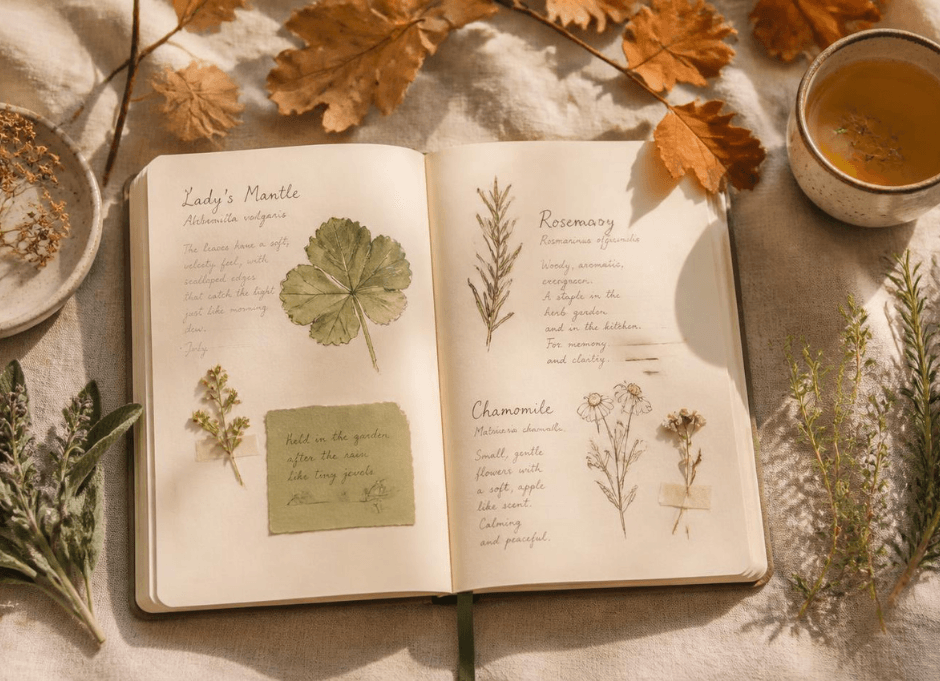 Lady's Mantle
Alchemilla vulgaris
The leaves have a soft,
velvety feel, with
scalloped edges
that catch the light
just like morning
dew.
July
Held in the garden
after the rain
like tiny jewels
Rosemary
Rosmarinus officinalis
Woody, aromatic,
evergreen.
A staple in the
herb garden
and in the kitchen.
For memory
and clarity.
Chamomile
Small, gentle
flowers with
a soft, apple
like scent.
Calming
and peaceful.